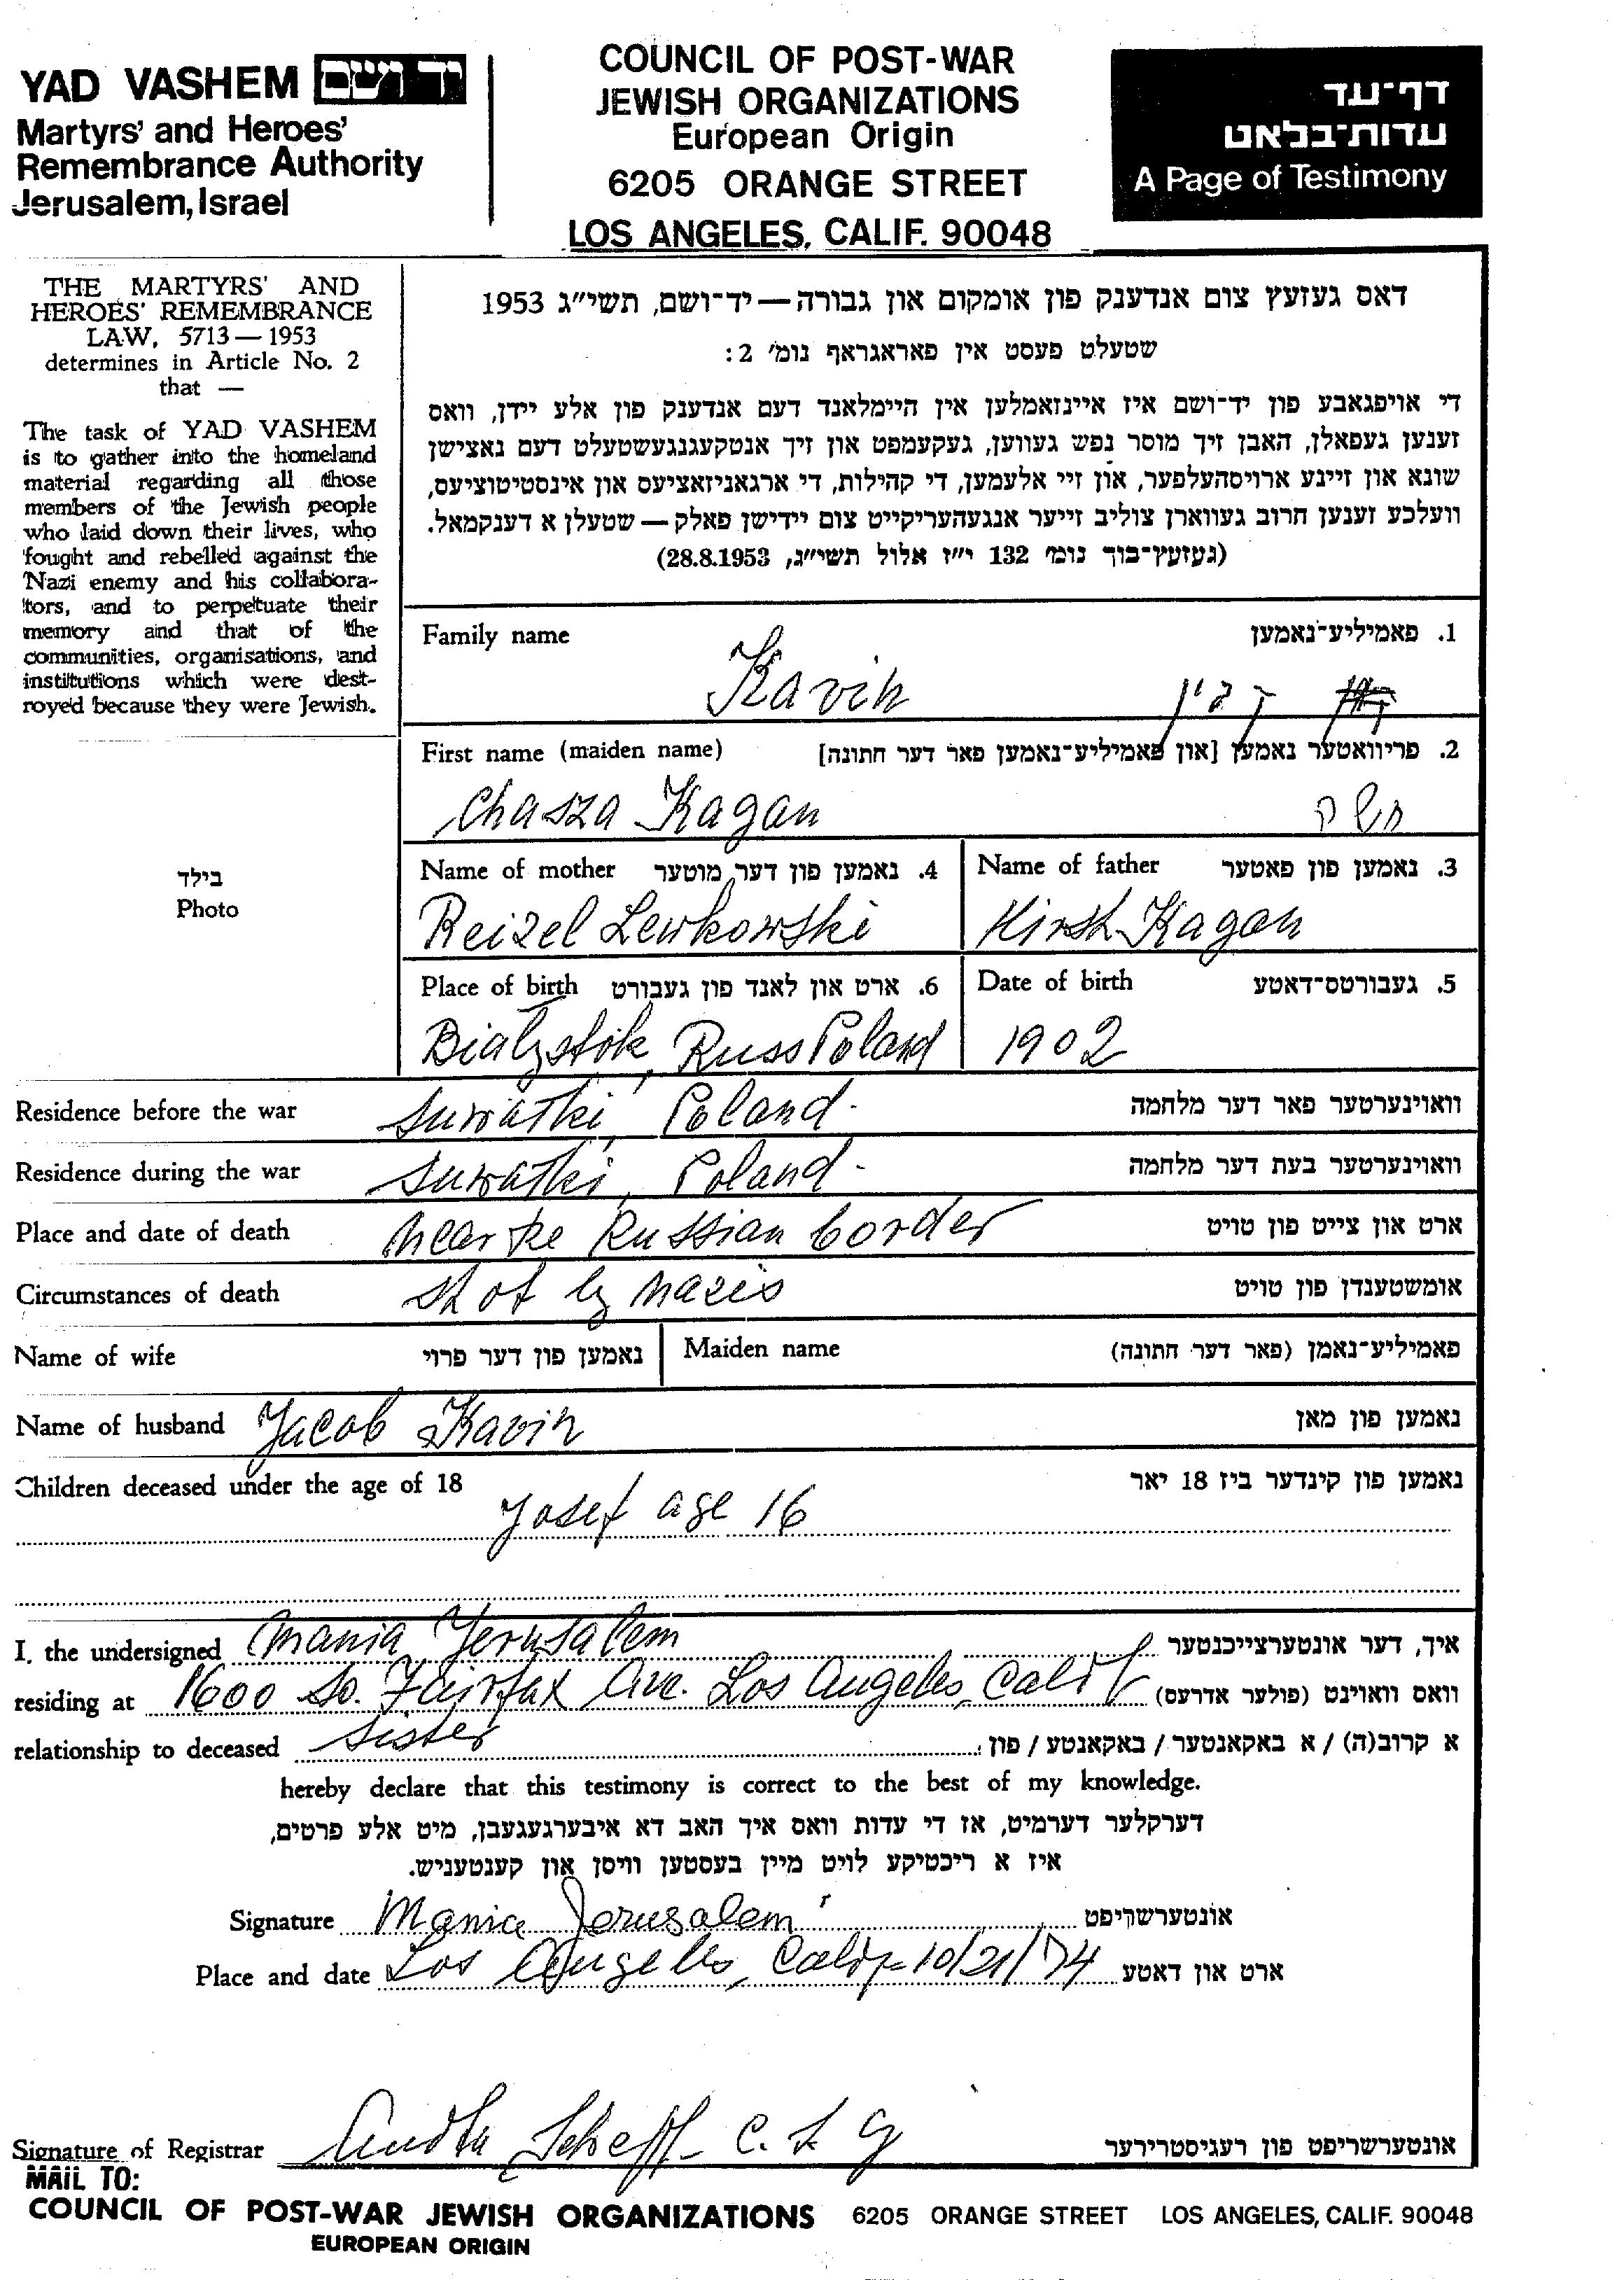 YAD VASHEM יד ושם
Martyrs' and Heroes'
Remembrance Authority
Jerusalem, Israel
COUNCIL OF POST-WAR
JEWISH ORGANIZATIONS
European Origin
6205 ORANGE STREET
LOS ANGELES, CALIF. 90048
דף־עד
עדות־בלאט
A Page of Testimony
THE MARTYRS' AND
HEROES' REMEMBRANCE
LAW, 5713—1953
determines in Article No. 2
that —
The task of YAD VASHEM
is to gather into the homeland
material regarding all those
members of the Jewish people
who laid down their lives, who
fought and rebelled against the
Nazi enemy and his collabora-
tors, and to perpetuate their
memory and that of the
communities, organisations, and
institutions which were dest-
royed because they were Jewish.
דאס געזעץ צום אנדענק פון אומקום און גבורה — יד־ושם, תשי״ג 1953
שטעלט פעסט אין פאראגראף נומ׳ 2:
די אויפגאבע פון יד־ושם איז איינזאמלען אין היימלאנד דעם אנדענק פון אלע יידן, וואס
זענען געפאלן, האבן זיך מוסר נפש געווען, געקעמפט און זיך אנטקעגנגעשטעלט דעם נאצישן
שונא און זיינע ארויסהעלפער, און זיי אלעמען, די קהילות, די ארגאניזאציעס און אינסטיטוציעס,
וועלכע זענען חרוב געווארן צוליב זייער אנגעהעריקייט צום יידישן פאלק — שטעלן א דענקמאל.
(געזעץ־בוך נומ׳ 132 י״ז אלול תשי״ג, 28.8.1953)
Family name 1. פאמיליע־נאמען
Kavin קבין
First name (maiden name) 2. פריוואטער נאמען [און פאמיליע־נאמען פאר דער חתונה]
Chasza Kagan חשקה
בילד
Photo
Name of mother 4. נאמען פון דער מוטער Name of father 3. נאמען פון פאטער
Reizel Lewkowski Hirsh Kagan
Place of birth 6. ארט און לאנד פון געבורט Date of birth 5. געבורטס־דאטע
Bialystok, Russ Poland 1902
Residence before the war Suwalki, Poland. וואוינערטער פאר דער מלחמה
Residence during the war Suwalki, Poland - וואוינערטער בעת דער מלחמה
Place and date of death near the Russian border ארט און צייט פון טויט
Circumstances of death shot by nazis אומשטענדן פון טויט
Name of wife נאמען פון דער פרוי Maiden name פאמיליע־נאמן (פאר דער חתונה)
Name of husband Jacob Kavin נאמען פון מאן
Children deceased under the age of 18 נאמען פון קינדער ביז 18 יאר
Josef age 16
I, the undersigned Mania Jerusalem איך, דער אונטערצייכנטער
residing at 1600 So. Fairfax Ave. Los Angeles, Calif וואס וואוינט (פולער אדרעס)
relationship to deceased sister א קרוב(ה) / א באקאנטער / באקאנטע / פון
hereby declare that this testimony is correct to the best of my knowledge.
דערקלער דערמיט, אז די עדות וואס איך האב דא איבערגעגעבן, מיט אלע פרטים,
איז א ריכטיקע לויט מיין בעסטען וויסן און קענטעניש.
Signature Mania Jerusalem אונטערשריפט
Place and date Los Angeles, Calif - 10/21/74 ארט און דאטע
Signature of Registrar Scheff אונטערשריפט פון רעגיסטרירער
MAIL TO:
COUNCIL OF POST-WAR JEWISH ORGANIZATIONS 6205 ORANGE STREET LOS ANGELES, CALIF. 90048
EUROPEAN ORIGIN